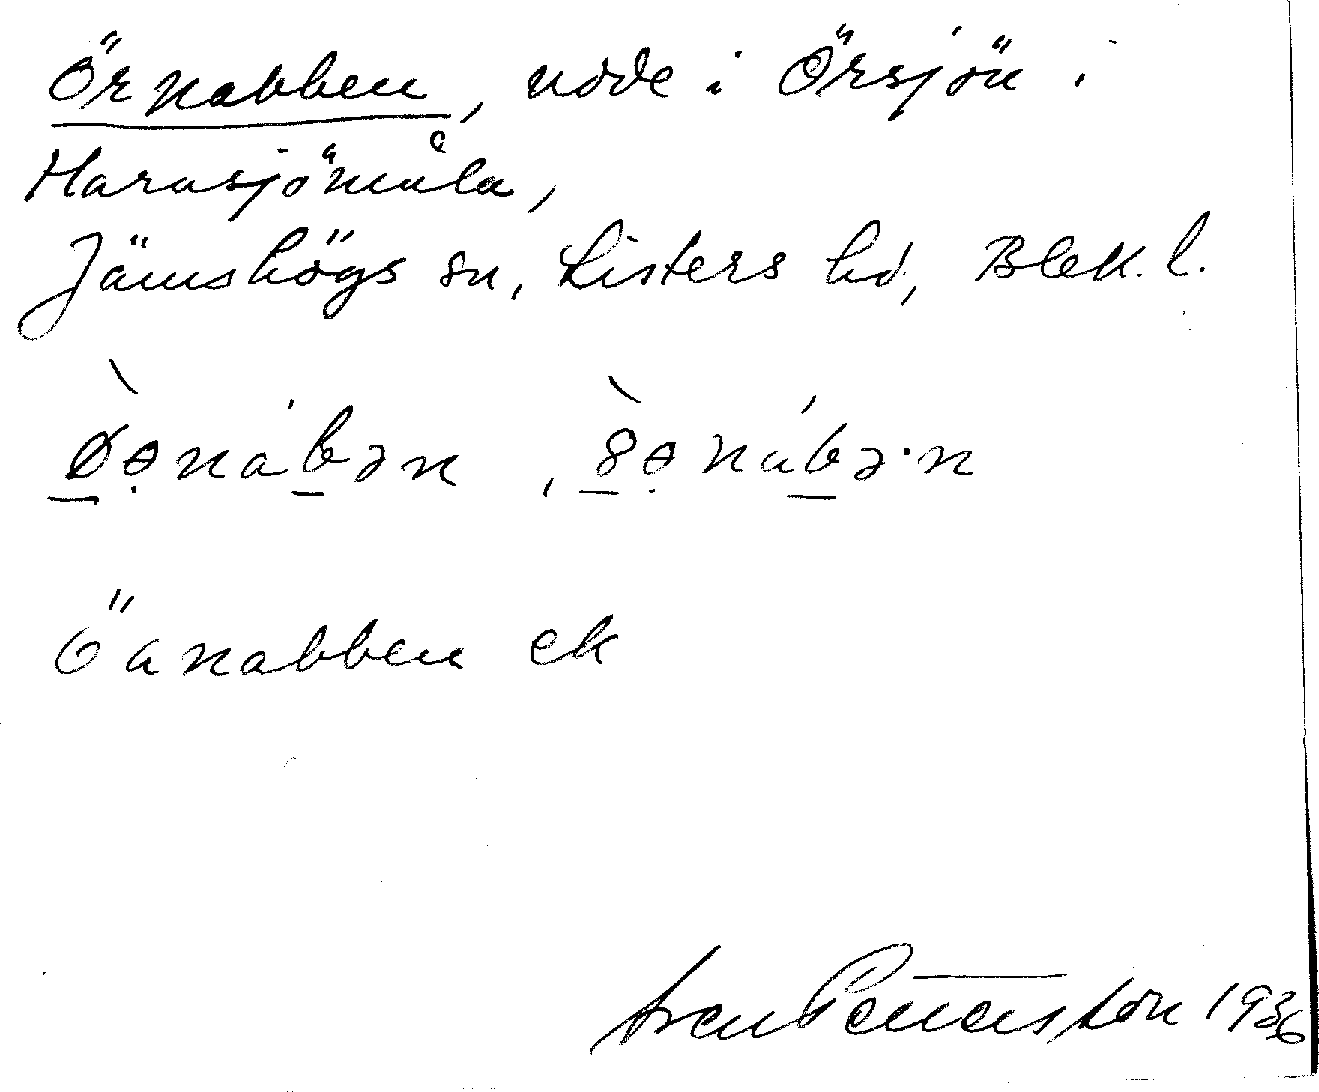 Örnabben, udde i Örsjön i
Harasjömåla,
Jämshögs sn, Listers hd, Blek. l.
Öanabben ek
1936